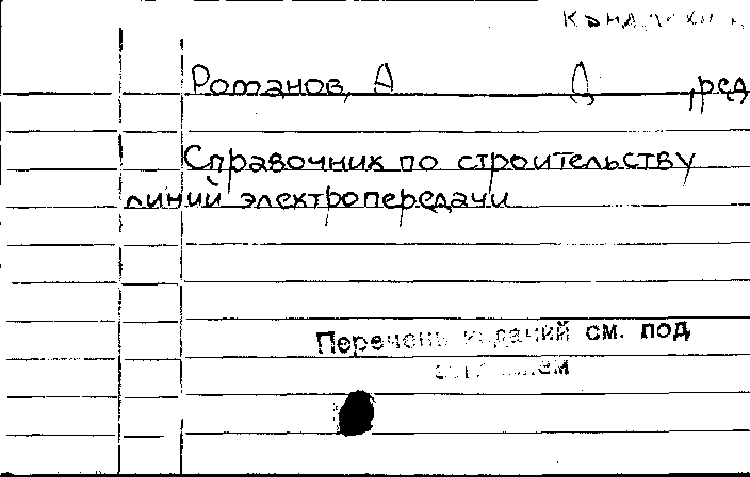 Романов, А Д ,ред
Справочник по строительству
линий электропередачи
Перечень изданий см. под